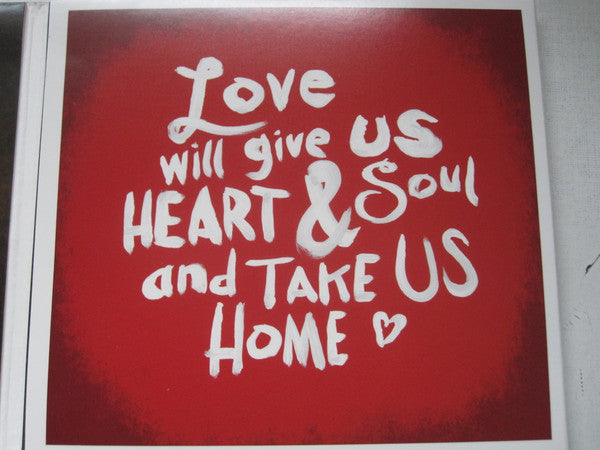 Love
will give US
HEART & Soul
and TAKE US
HOME ♡